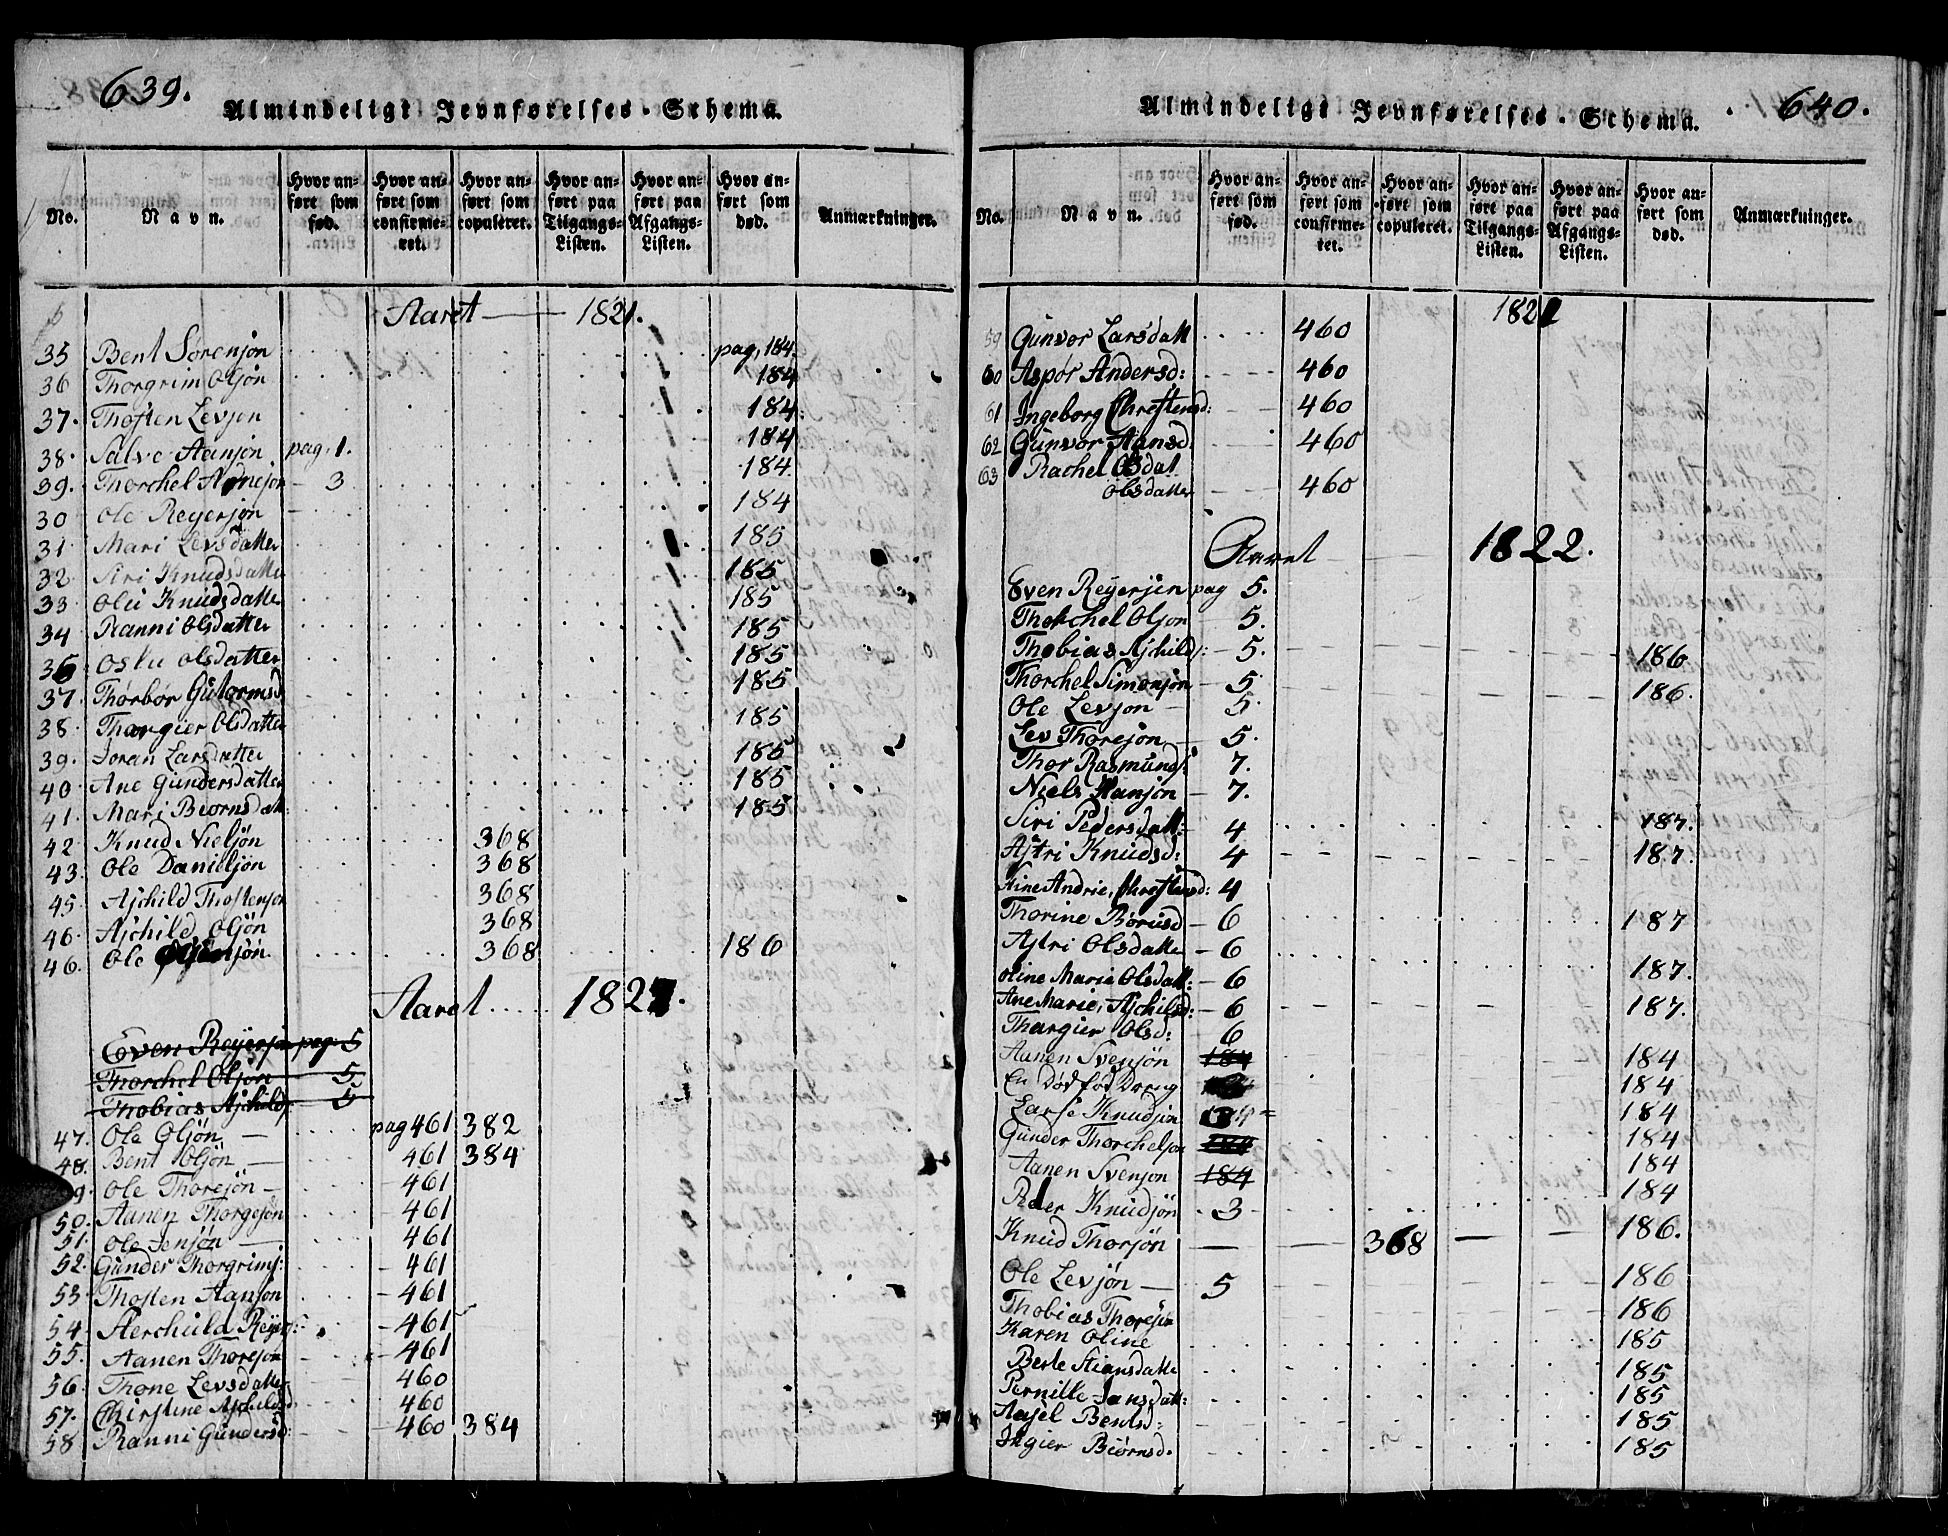 639.
Almindeligt Jevnførelses-Schema.
No.
Navn.
Hvor anført som fød.
Hvor anført som confirmeret.
Hvor anført som copuleret.
Hvor anført paa Tilgangs-Listen.
Hvor anført paa Afgangs-Listen.
Hvor anført som død.
Anmærkninger.
Aaret 1821.
35 Bent Sørensøn pag, 184.
36 Thorgrim Olsøn 184
37. Thosten Levsen 184.
38. Salve Aansøn pag. 1. 184
39. Thorchel Adnesøn 3 184.
30 Ole Reyersøn 184
31 Mari Levsdatter 185
32 Siri Knudsdatte 185
33 Olu Knudsdatter 185
34 Ranni Olsdatter 185
36 Oslu Olsdatter 185
37. Thorbør Gutormsd 185
38. Thargier Olsdatter 185
39. Joran Larsdatter 185
40. Ane Gundersdatter 185
41. Mari Biørnsdatt: 185
42 Knud Nielsøn 368
43. Ole Danielsøn 368
45. Aschild Thostensøn 368
46. Aschild Olsøn 368
46. Ole 368 186
Aaret 1821.
Even Reyersøn pag: 5
Thorchel Olsøn 5.
Thobias Aschilds: 5
47. Ole Olsøn pag 461 382
48. Bent Olsøn 461 384
9. Ole Thoresøn 461
50. Aanen Thorgesøn 461
51. Ole Jensøn 461
52. Gunder Thorgrims: 461
53. Thosten Aansøn 461
54. Aerchuld Reyers: 461
55. Aanen Thoresøn 461
56. Thone Levsdatter 460
57. Chirstine Aschildsd 460
58 Ranni Gundersd: 460 384
640.
Almindeligt Jevnførelses-Schema.
No.
Navn.
Hvor anført som fød.
Hvor anført som confirmeret.
Hvor anført som copuleret.
Hvor anført paa Tilgangs-Listen.
Hvor anført paa Afgangs-Listen.
Hvor anført som død.
Anmærkninger.
1821
59 Gunvor Larsdatt 460
60 Aspør Andersd: 460
61 Ingeborg Chrestensd: 460
62 Gunvor Aansd. 460
63 Rachel Osdat
Olsdatter 460
Aaret 1822.
Even Reyersen pag 5.
Thorchel Olson 5.
Thobias Aschilds: 5. 186
Thorchel Simonsøn 5 186.
Ole Levson 5.
Lev Thoresøn 5.
Thor Rasmunds: 7.
Niels Hansøn 7.
Siri Pedersdatt: 4 187.
Astri Knudsd: 4 187.
Stine Andrie, Chrestensd: 4
Thorine Børusd 6 187
Astri Olsdatte 6
Oline Marie Olsdatt: 6 187.
Ane Marie, Aschilsd: 6 187.
Thargier Olsd: 6
Aanen Svensøn 184 184
En Dødfød Dreng 184
Larse Knudsøn 184 184
Gunder Thorchelsøn 184 184
Aanen Svensøn 184 184
Peder Knudsøn 3 184
Knud Thorsøn 368 186.
Ole Levsøn 5 186
Thobias Thoresøn 186
Karen Oline 185
Berte Stiansdatte 185
Pernille Jansdatt: 185
Aasel Bentsd: 185
Ingier Biørnsd. 185